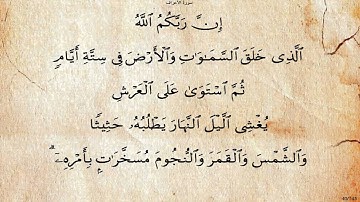 سورة الأعراف
إِنَّ رَبَّكُمُ ٱللَّهُ
ٱلَّذِى خَلَقَ ٱلسَّمَـٰوَٰتِ وَٱلْأَرْضَ فِى سِتَّةِ أَيَّامٍۢ
ثُمَّ ٱسْتَوَىٰ عَلَى ٱلْعَرْشِ
يُغْشِى ٱلَّيْلَ ٱلنَّهَارَ يَطْلُبُهُۥ حَثِيثًۭا
وَٱلشَّمْسَ وَٱلْقَمَرَ وَٱلنُّجُومَ مُسَخَّرَٰتٍۭ بِأَمْرِهِۦٓ ۗ